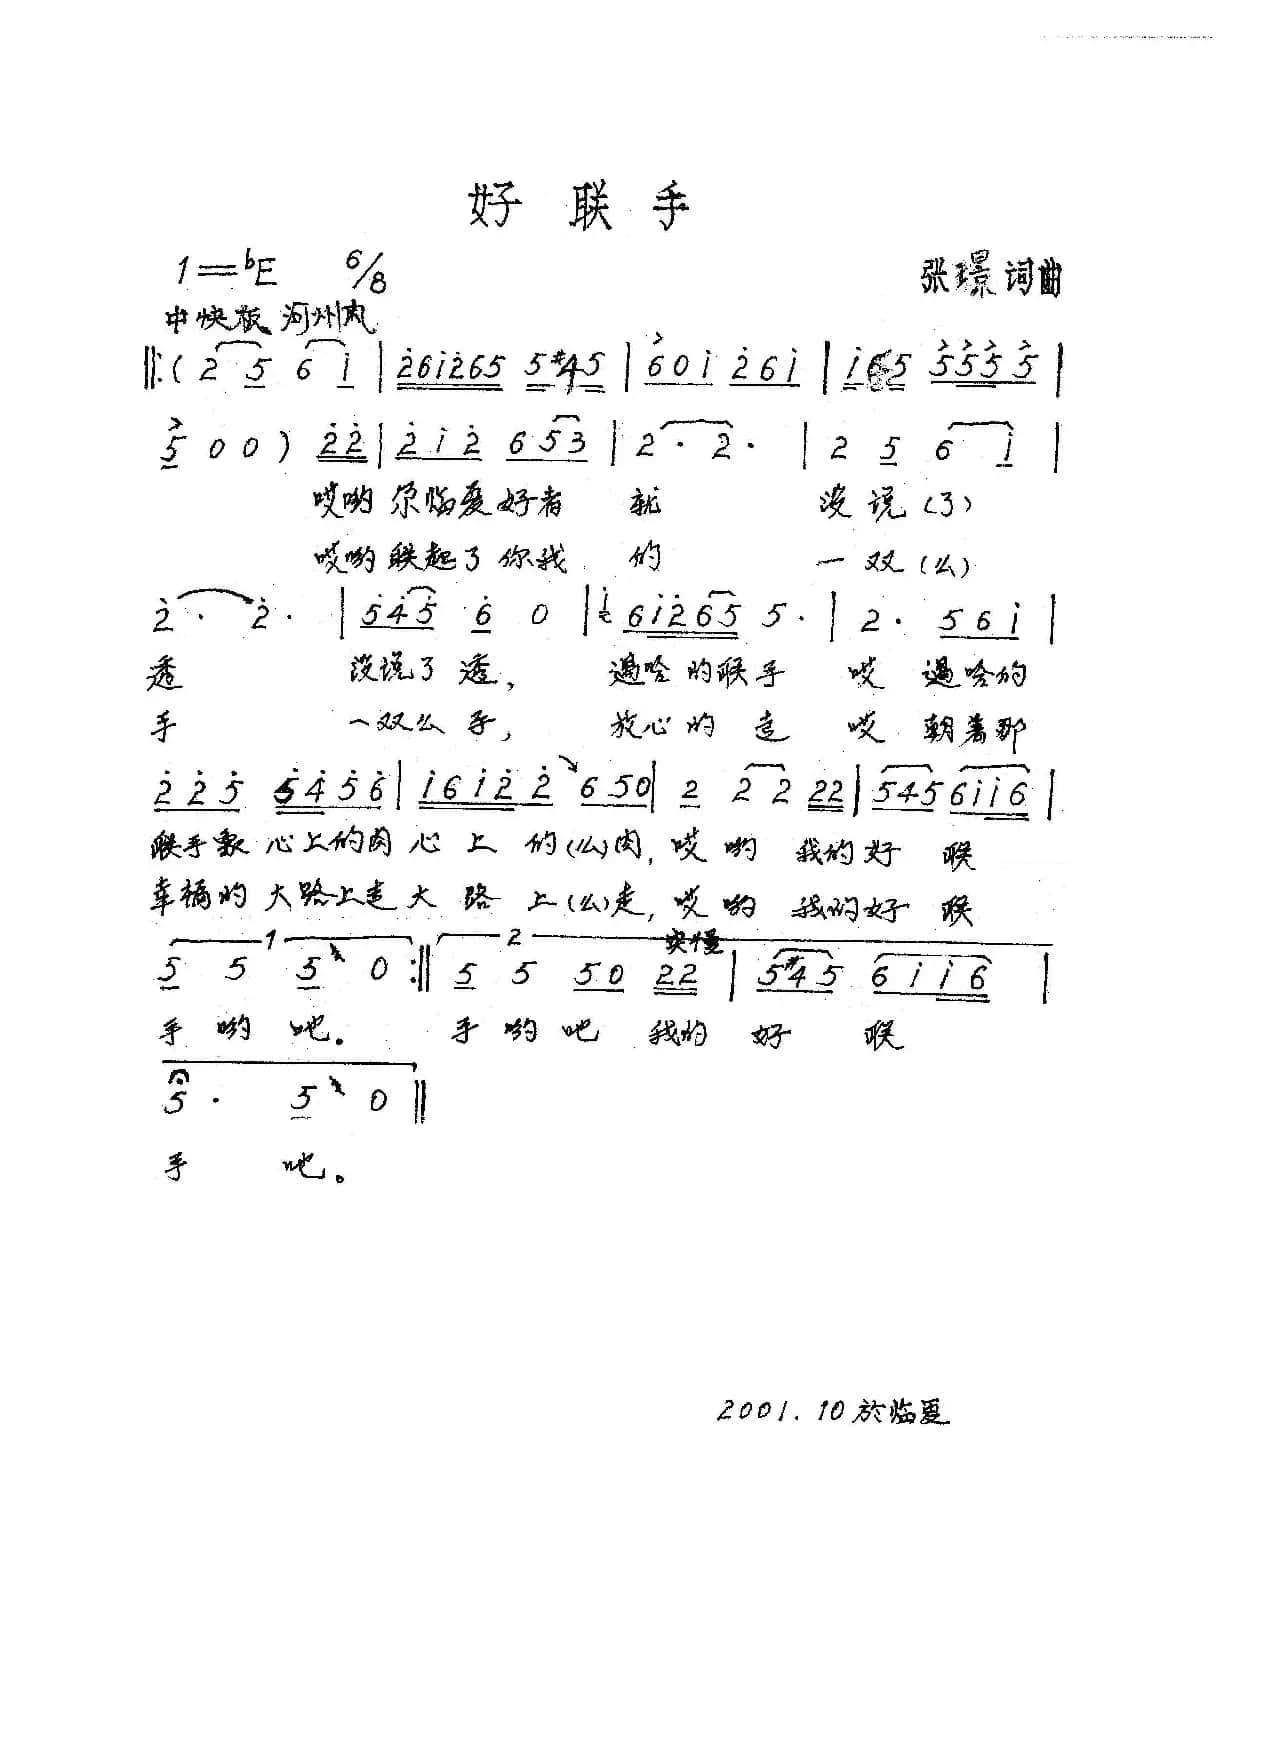 好联手
1=bE 6/8 张璟词曲
中快板 河州风
‖:( 2 5 6 i | 2̇6i2̇65 5#45 | 60i 2̇6i | i65 5555 |
5 0 0 ) 2̇2̇ | 2̇ i 2̇ 6 53 | 2· 2· | 2 5 6 i |
哎哟尕临夏好者 就 没说(了)
哎哟联起了你我 的 一双(么)
2̇· 2̇· | 5̇4̇5̇ 6̇ 0 | 6i2̇65 5· | 2· 56i |
透 没说了透, 过啥的联手 哎 过啥的
手 一双么手, 放心的走 哎 朝着那
2̇ 2̇ 5̇ 5̇4̇5̇6̇ | i6i2̇ 2̇ 650 | 2 2 2 22 | 545 6ii6 |
联手象 心上的肉 心上的(么)肉, 哎哟 我的好联
幸福的 大路上走 大路上(么)走, 哎哟 我的好联
1 2 突慢
5 5 5 0 :‖ 5 5 50 22 | 5#45 6ii6 |
手哟吔。 手哟吔 我的好联
5· 5 0 ‖
手 吔。
2001.10於临夏